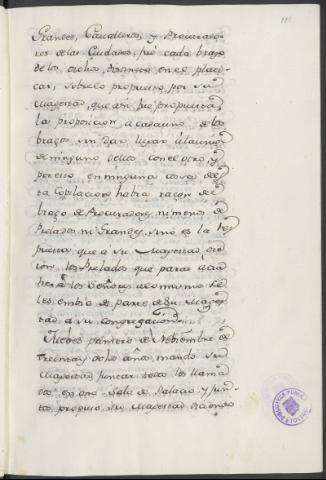 Grandes, Caualleros, y Procurado-
res de las Ciudades, fué cada brazo
de los dichos distinto en el plati-
car, sobre lo propuesto por su
Magestad, que assi fue propuesta
la proposicion a cada uno de los
brazos sin dar lugar a la union
de ninguno dellos con el otro, y
por esso en ninguna cosa de es-
ta Copilacion habra razon del
brazo de Procuradores, ni menos de
Prelados ni Grandes, sino es la res
puesta que á Su Magestad, di-
eron los Prelados, que para
los Señores
les embio de parte de Su Mages-
tad, a su congregacion.
Jueves primero de Nobiembre de
treinta y ocho años, mando Su
Magestad juntar todos los llama-
dos en una Sala de Palacio, y jun-
tos propuso Su Magestad diciendo